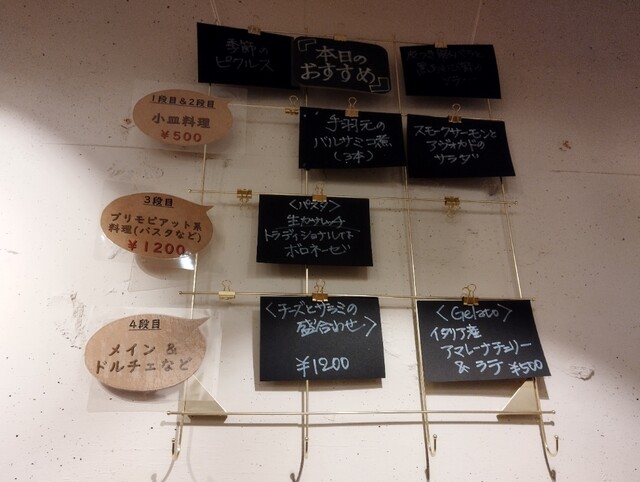 季節の
ピクルス
『本日の
おすすめ』
1段目＆2段目
小皿料理
￥500
手羽元の
バルサミコ煮
(3本)
スモークサーモンと
アボカドの
サラダ
3段目
プリモピアット系
料理(パスタなど)
￥1200
〈パスタ〉
トラディショナル
ボロネーゼ
4段目
メイン ＆
ドルチェなど
〈チーズとサラミの
盛合わせ〉
￥1200
〈Gelato〉
イタリア産
アマレーナチェリー
& ラテ ￥500